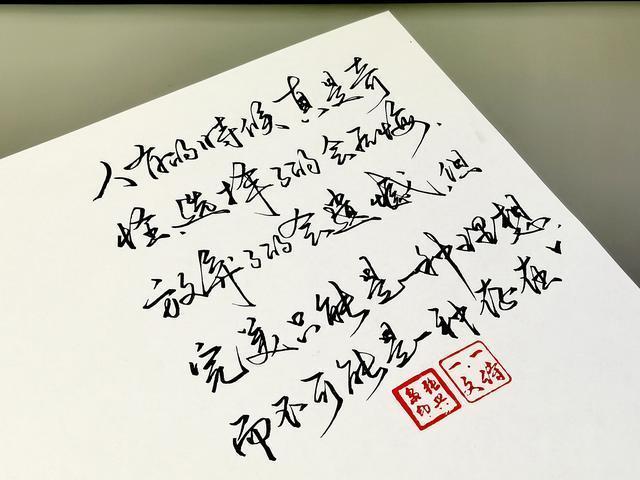 人有的时候真是奇
怪.选择了的会后悔.
放弃了的会遗憾.但
完美只能是一种理想.
而不可能是一种存在.